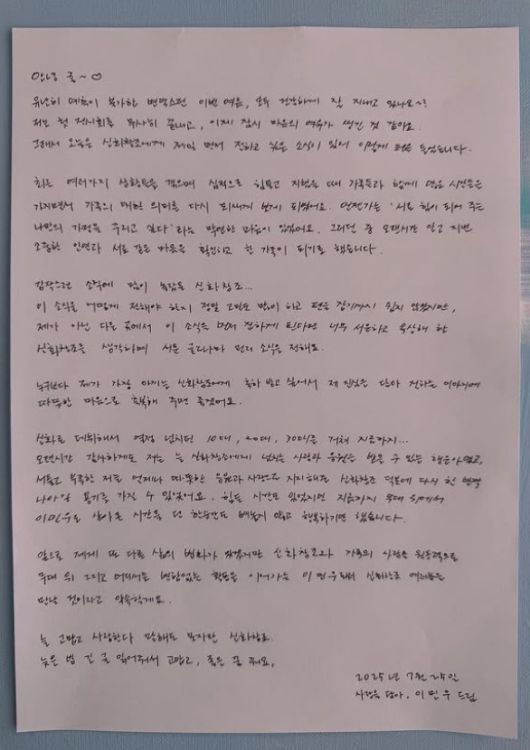 안녕 귤~♡
유난히 예측이 불가한 변덕스런 이번 여름, 모두 건강하게 잘 지내고 있나요~?
저는 첫 전시회를 무사히 끝내고, 이제 잠시 마음의 여유가 생긴 것 같아요.
그래서 오늘은 신화창조에게 제일 먼저 전하고 싶은 소식이 있어 이렇게 펜을 들었습니다.
최근 여러가지 상황들을 겪으며 심적으로 힘들고 지쳤을 때 가족들과 함께 많은 시간들을
가지면서 가족의 대한 의미를 다시 되새겨 보게 되었어요. 언젠가는 '서로 힘이 되어 주는
나만의 가정을 꾸리고 싶다' 라는 막연한 마음이 있었어요. 그러던 중 오랜시간 알고 지낸
소중한 인연과 서로 같은 마음을 확인하고 한 가족이 되기로 했습니다.
갑작스런 소식에 많이 놀랐을 신화창조...
이 소식을 어떻게 전해야 할지 정말 고민도 많이 하고 펜을 잡기까지 쉽지 않았지만,
제가 아닌 다른 곳에서 이 소식을 먼저 전하게 된다면 너무 서운하고 속상해 할
신화창조를 생각하며 서툰 글로나마 먼저 소식을 전해요.
누구보다 제가 가장 아끼는 신화창조에게 축하 받고 싶어서 제 진심을 담아 전하는 이야기에
따뜻한 마음으로 축복해 주면 좋겠어요.
신화로 데뷔해서 열정 넘치던 10대, 20대, 30대를 거쳐 지금까지...
오랜시간 감사하게도 저는 늘 신화창조에게 넘치는 사랑과 응원을 받을 수 있는 행운아였고,
서툴고 부족한 저를 언제나 따뜻한 응원과 사랑으로 지지해준 신화창조 덕분에 다시 한 번
나아갈 용기를 가질 수 있었어요. 힘든 시간도 있었지만 지금까지 무대 위에서
이민우로 살아온 시간을 단 한순간도 빼놓지 않고 행복하기만 했습니다.
앞으로 제게 또 다른 삶의 변화가 생겼지만 신화창조와 가족의 사랑을 원동력으로
무대 위 그리고 어디서든 변함없는 활동을 이어가는 이민우로 신화창조 여러분을
만날 것이라고 약속할게요.
늘 고맙고 사랑한다 말해도 모자란 신화창조.
늦은 밤 긴 글 읽어줘서 고맙고, 좋은 꿈 꿔요.
2025년 7월 25일
사랑을 담아, 이민우 드림